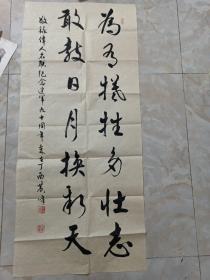 為有犧牲多壯志
敢教日月換新天
敬録偉人名联纪念建军九十周年